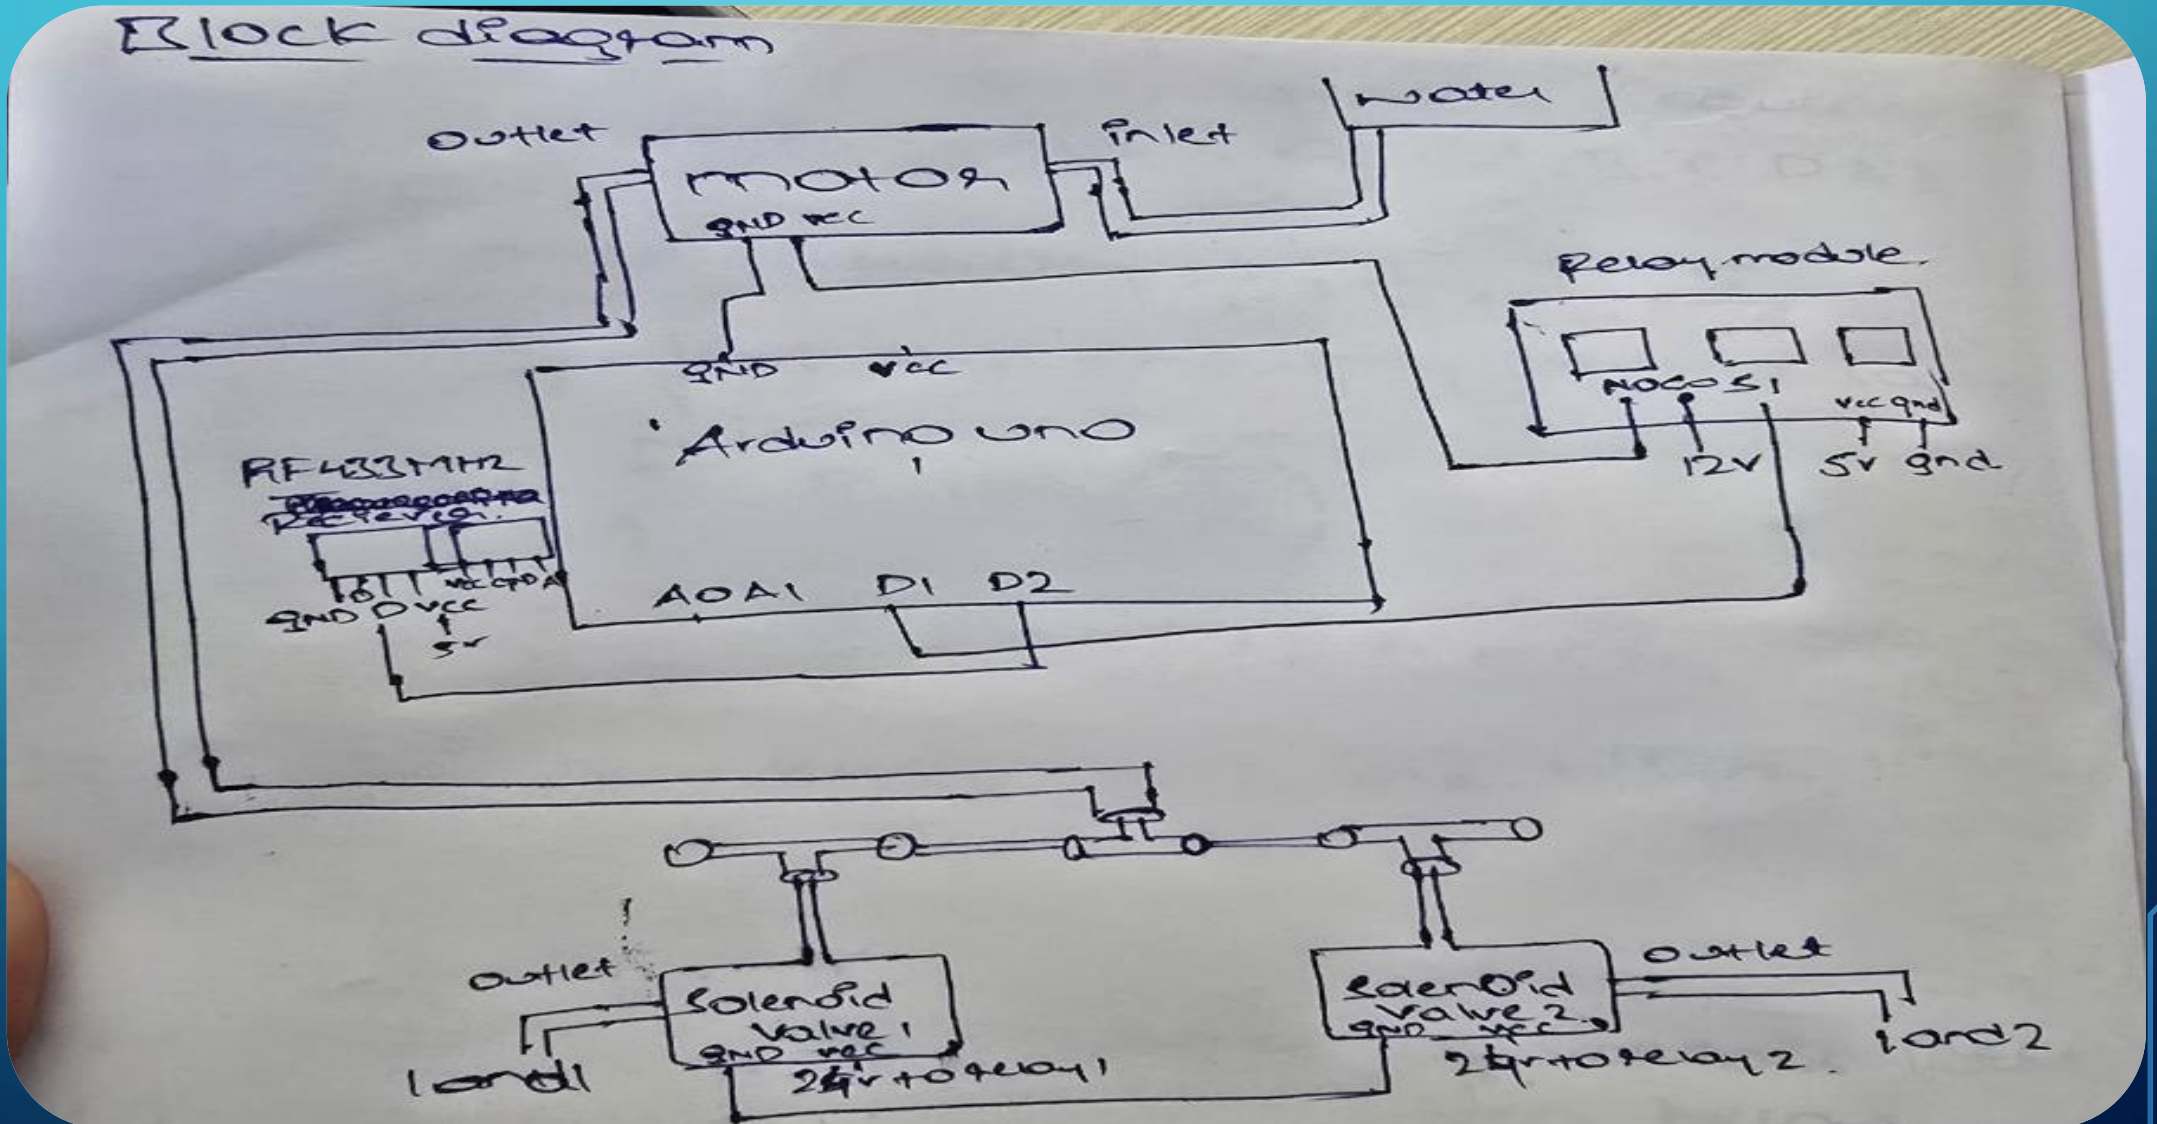 Block diagram
Outlet
motor
GND vcc
inlet
water
Relay module
NO CO S1
vcc gnd
12V
5v gnd
GND vcc
Arduino uno
A0 A1 D1 D2
RF433MHz
Reciever
vcc GND A
GND D vcc
5v
Outlet
Solenoid
Valve 1
GND vcc
land1
24v to relay 1
Solenoid
Valve 2
GND vcc
24v to relay 2.
Outlet
land2